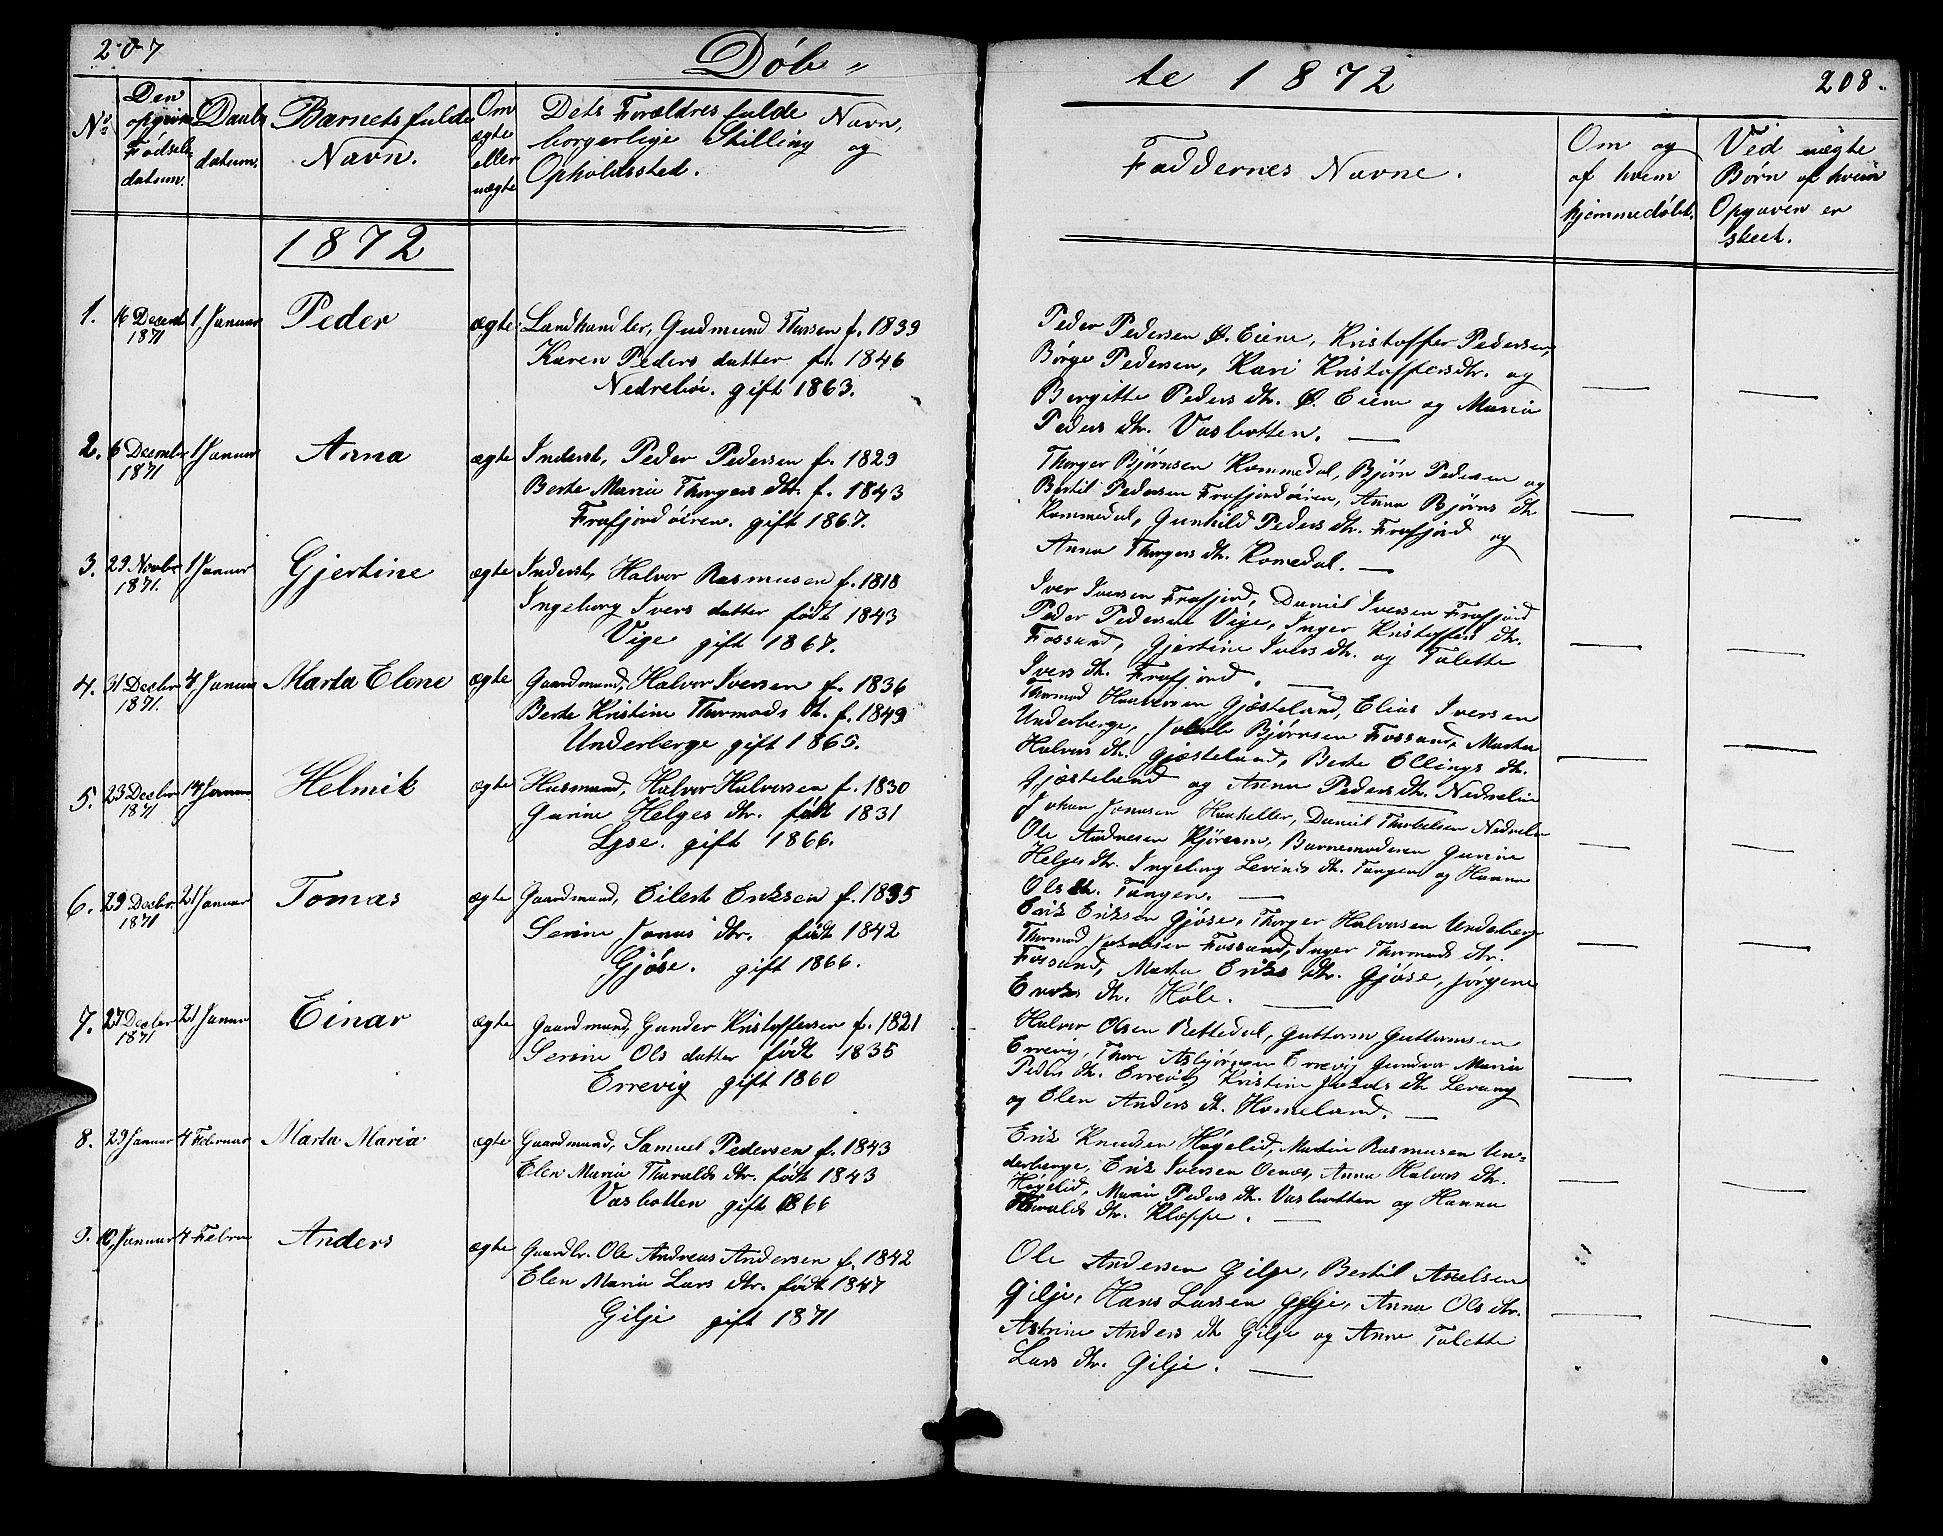 207
Döb-
te 1872
208.
No
Den opgivne Fødsels datum.
Daabs datum.
Barnets fulde Navn.
Om ægte eller uægte
Dets Forældres fulde Navn, borgerlige Stilling og Opholdssted.
Faddernes Navne.
Om og af hvem hjemmedøbt.
Ved uægte Børn af hvem Opgaven er skeet.
1872
1. 16 Decemb 1871 1, Januar Peder ægte
Landhandler, Gudmund Thussen f. 1839
Karen Peders datter f. 1846
Nedrebøe. gift 1863.
Peder Pedersen Ø. Eiene, Kristoffer Pedersen,
Børge Pedersen, Kari Kristoffersdtr. og
Bergitte Peders dtr. Ø. Eiene og Maria
Peders dtr. Vasbotten. —
2. 6 Decembr 1871 1 Januar Anna ægte
Inderst, Peder Pedersen f. 1829
Berte Maria Thorgers dtr. f. 1843
Frafjordøiren. gift 1867.
Thorger Bjørnsen Kommedal, Bjørn Pedersen og
Bertil Pedersen Frafjordøiren, Anna Bjørns dtr
Kommedal, Gunhild Peders dtr. Frafjord og
Anna Thorgers dtr. Komedal. —
3. 29 Novbr 1871. 1 Januar Gjertine ægte
Inderst, Halvor Rasmusen f. 1818
Ingeborg Ivers datter født 1843
Vige gift 1867.
Iver Iversen Frafjord, Daniel Iversen Frafjord
Peder Pedersen Vige, Inger Kristoffers dtr.
Fossand, Gjertine Ivers dtr. og Talette
Ivers dtr. Frafjord. —
4. 31 Decbr 1871. 4 Januar Marta Elene ægte
Gaardmand, Halvor Iversen f. 1836
Berte Kristine Thormods dtr. f. 1849
Underberge gift 1865.
Thormod Gjæsteland, Elias Iversen
Underberge, Jakob Bjørnsen Fossand, Marta
Halvors dtr. Gjæsteland, Berte Ellings dtr.
Gjæsteland og Anna Peders dtr. Nedrebøe
5. 23 Decbr 1871 14 Januar Helmik ægte
Husmand, Halvor Halvorsen f. 1830
Gurine Helges dtr. født 1831
Lyse. gift 1866.
Johan Jonassen Haukelier, Daniel Nedrebø
Ole Andresen Kjøreim, Barnemoderen Gurine
Helges dtr. Ingeborg Levinds dtr. Tangen og Hanna
Ols dtr. Tangen. —
6. 29 Decbr. 1871 21 Januar Tomas ægte
Gaardmand, Eilert Eriksen f. 1835
Serine Jonas dtr. født 1842
Gjøse. gift 1866.
Erik Eriksen Gjøse, Thorger Halvorsen Underberg
Thormod Jakobsen Fossand, Inger Thormods dtr.
Fossand, Marta Eriks dtr. Gjøse, Jørgine
Eriks dtr. Høle. —
7. 27 Decbr 1871 21, Januar Einar ægte
Gaardmand, Gunder Kristoffersen f. 1821
Serine Ols datter født 1835
Errevig gift 1860
Halvor Olsen Rettedal, Guttorm Guttormsen
Errevig, Thore Asbjørnsen Errevig Gundvor Maria
Peders dtr. Errevig Kristine Jakobs dtr Levang
og Elen Anders dtr. Hommeland. —
8. 23 Januar 4 Februar Marta Maria ægte
Gaardmand, Samuel Pedersen f. 1843
Elen Maria Thoralds dtr. født 1843
Vasbotten gift 1866
Erik Knudsen Høgelid, Martin Rasmusen Un-
derberge, Erik Iversen Oenæs, Anna Halvors dtr.
Høgelid, Maria Peders dtr. Vasbotten og Hanna
Thoralds dtr. Kleppe. —
9. 10, Januar 4 Febru Anders ægte
Gaardbr. Ole Andreas Andersen f. 1842
Elen Maria Lars dtr. født 1847
Gilje gift 1871
Ole Andersen Gilje, Bertil Axelsen
Gilje, Hans Larsen Gilje, Anna Ols dtr.
Astrine Anders dtr Gilje og Anne Talette
Lars dtr. Gilje. —